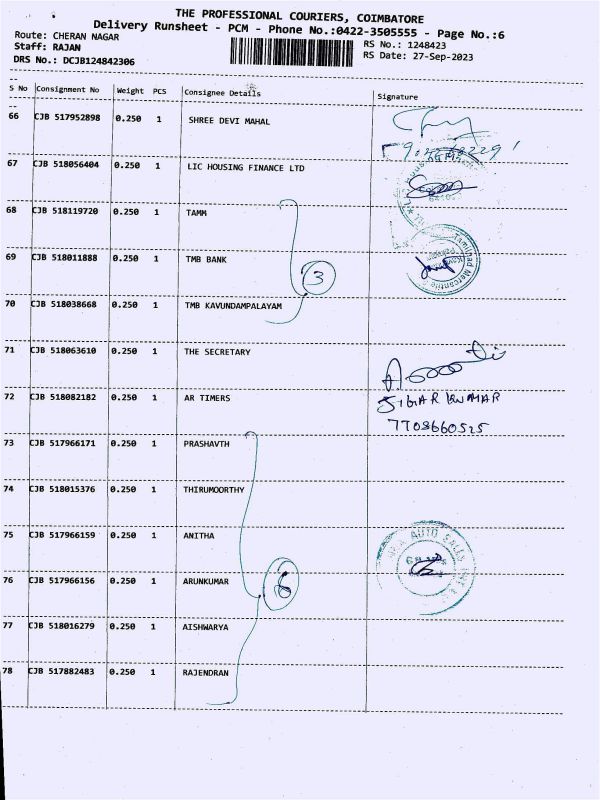 THE PROFESSIONAL COURIERS, COIMBATORE
Delivery Runsheet - PCM - Phone No.:0422-3505555 - Page No.:6
Route: CHERAN NAGAR RS No.: 1248423
Staff: RAJAN RS Date: 27-Sep-2023
DRS No.: DCJB124842306
S No Consignment No Weight PCS Consignee Details Signature
66 CJB 517952898 0.250 1 SHREE DEVI MAHAL
67 CJB 518056404 0.250 1 LIC HOUSING FINANCE LTD
68 CJB 518119720 0.250 1 TAMM
69 CJB 518011888 0.250 1 TMB BANK
3
70 CJB 518038668 0.250 1 TMB KAVUNDAMPALAYAM
71 CJB 518063610 0.250 1 THE SECRETARY
72 CJB 518082182 0.250 1 AR TIMERS
7708660525
73 CJB 517966171 0.250 1 PRASHAVTH
74 CJB 518015376 0.250 1 THIRUMOORTHY
75 CJB 517966159 0.250 1 ANITHA
AUTO SALES
76 CJB 517966156 0.250 1 ARUNKUMAR
6
77 CJB 518016279 0.250 1 AISHWARYA
78 CJB 517882483 0.250 1 RAJENDRAN